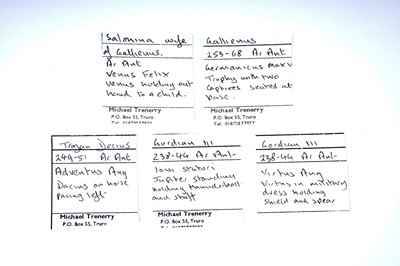 Salonina wife
of Gallienus.
Ar Ant
Venus Felix
Venus holding out
hand to a child.
Michael Trenerry
P.O. Box 55, Truro
Gallienus
253-68 Ar Ant
Germanicus Max V
Trophy with two
Captives seated at
base.
Michael Trenerry
P.O. Box 55, Truro
Trajan Decius
249-51 Ar Ant
Adventus Aug
Decius on horse
pacing left
Michael Trenerry
P.O. Box 55, Truro
Gordian III
238-44 Ar Ant-
Iovi Statori
Jupiter standing
holding thunderbolt
and staff
Michael Trenerry
P.O. Box 55, Truro
Gordian III
238-44 Ar Ant-
Virtus Aug
Virtus in military
dress holding
shield and spear
Michael Trenerry
P.O. Box 55, Truro